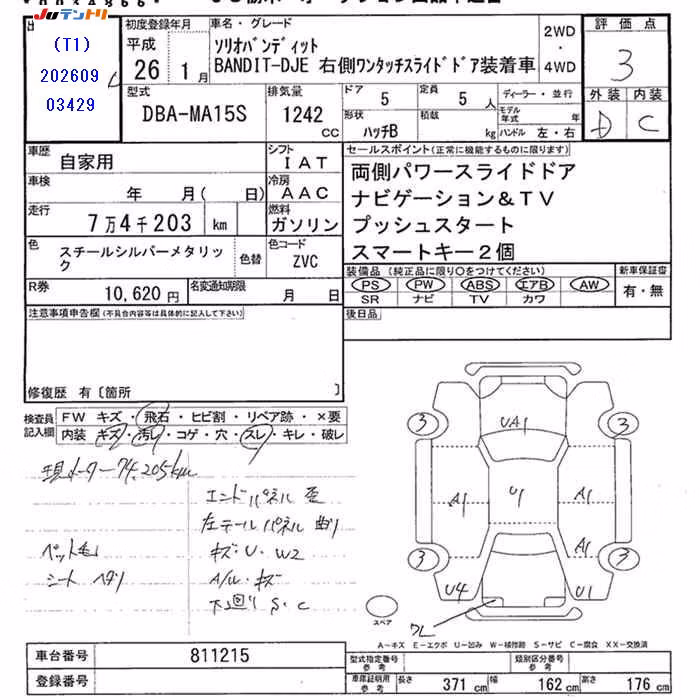 JUテントリ
(T1)
202609
03429
初度登録年月
平成
26 1月
車名・グレード
ソリオバンディット
BANDIT-DJE 右側ワンタッチスライドドア装着車
2WD
・
4WD
評価点
3
外装 内装
D C
型式
DBA-MA15S
排気量
1242
CC
ドア 5
定員 5人
形状
ハッチB
積載
kg
ディーラー・並行
モデル年式 年
ハンドル 左・右
車歴 自家用
シフト IAT
車検 年 月( 日)
冷房 AAC
走行 7万4千203 km
燃料 ガソリン
色 スチールシルバーメタリック
色替
色コード ZVC
R券 10,620円
名変通知期限 月 日
セールスポイント(正常に機能するものに限ります)
両側パワースライドドア
ナビゲーション&TV
プッシュスタート
スマートキー2個
装備品(純正品に限り○をつけてください)
PS PW ABS エアB AW
SR ナビ TV カワ
新車保証書
有・無
後日品
注意事項申告欄(不具合内容等は具体的に記入して下さい)
修復歴 有〔箇所 〕
検査員記入欄
FW キズ・飛石・ヒビ割・リペア跡・×要
内装・キズ・汚れ・コゲ・穴・スレ・キレ・破レ
現メーター74,205km
エンドパネル 歪
左テールパネル 曲り
ペット毛
キズ・U・W2
シート ヘタリ
A/W・キズ
下廻り S・C
3 3
UA1
A1 U1 A1
A1
3 3
U4 U1
スペア
ワレ
A−キズ E−エクボ U−凹み W−補修跡 S−サビ C−腐食 XX−交換済
車台番号 811215
登録番号
型式指定番号参考
類別区分番号参考
車庫証明用参考
長さ 371cm
幅 162cm
高さ 176cm